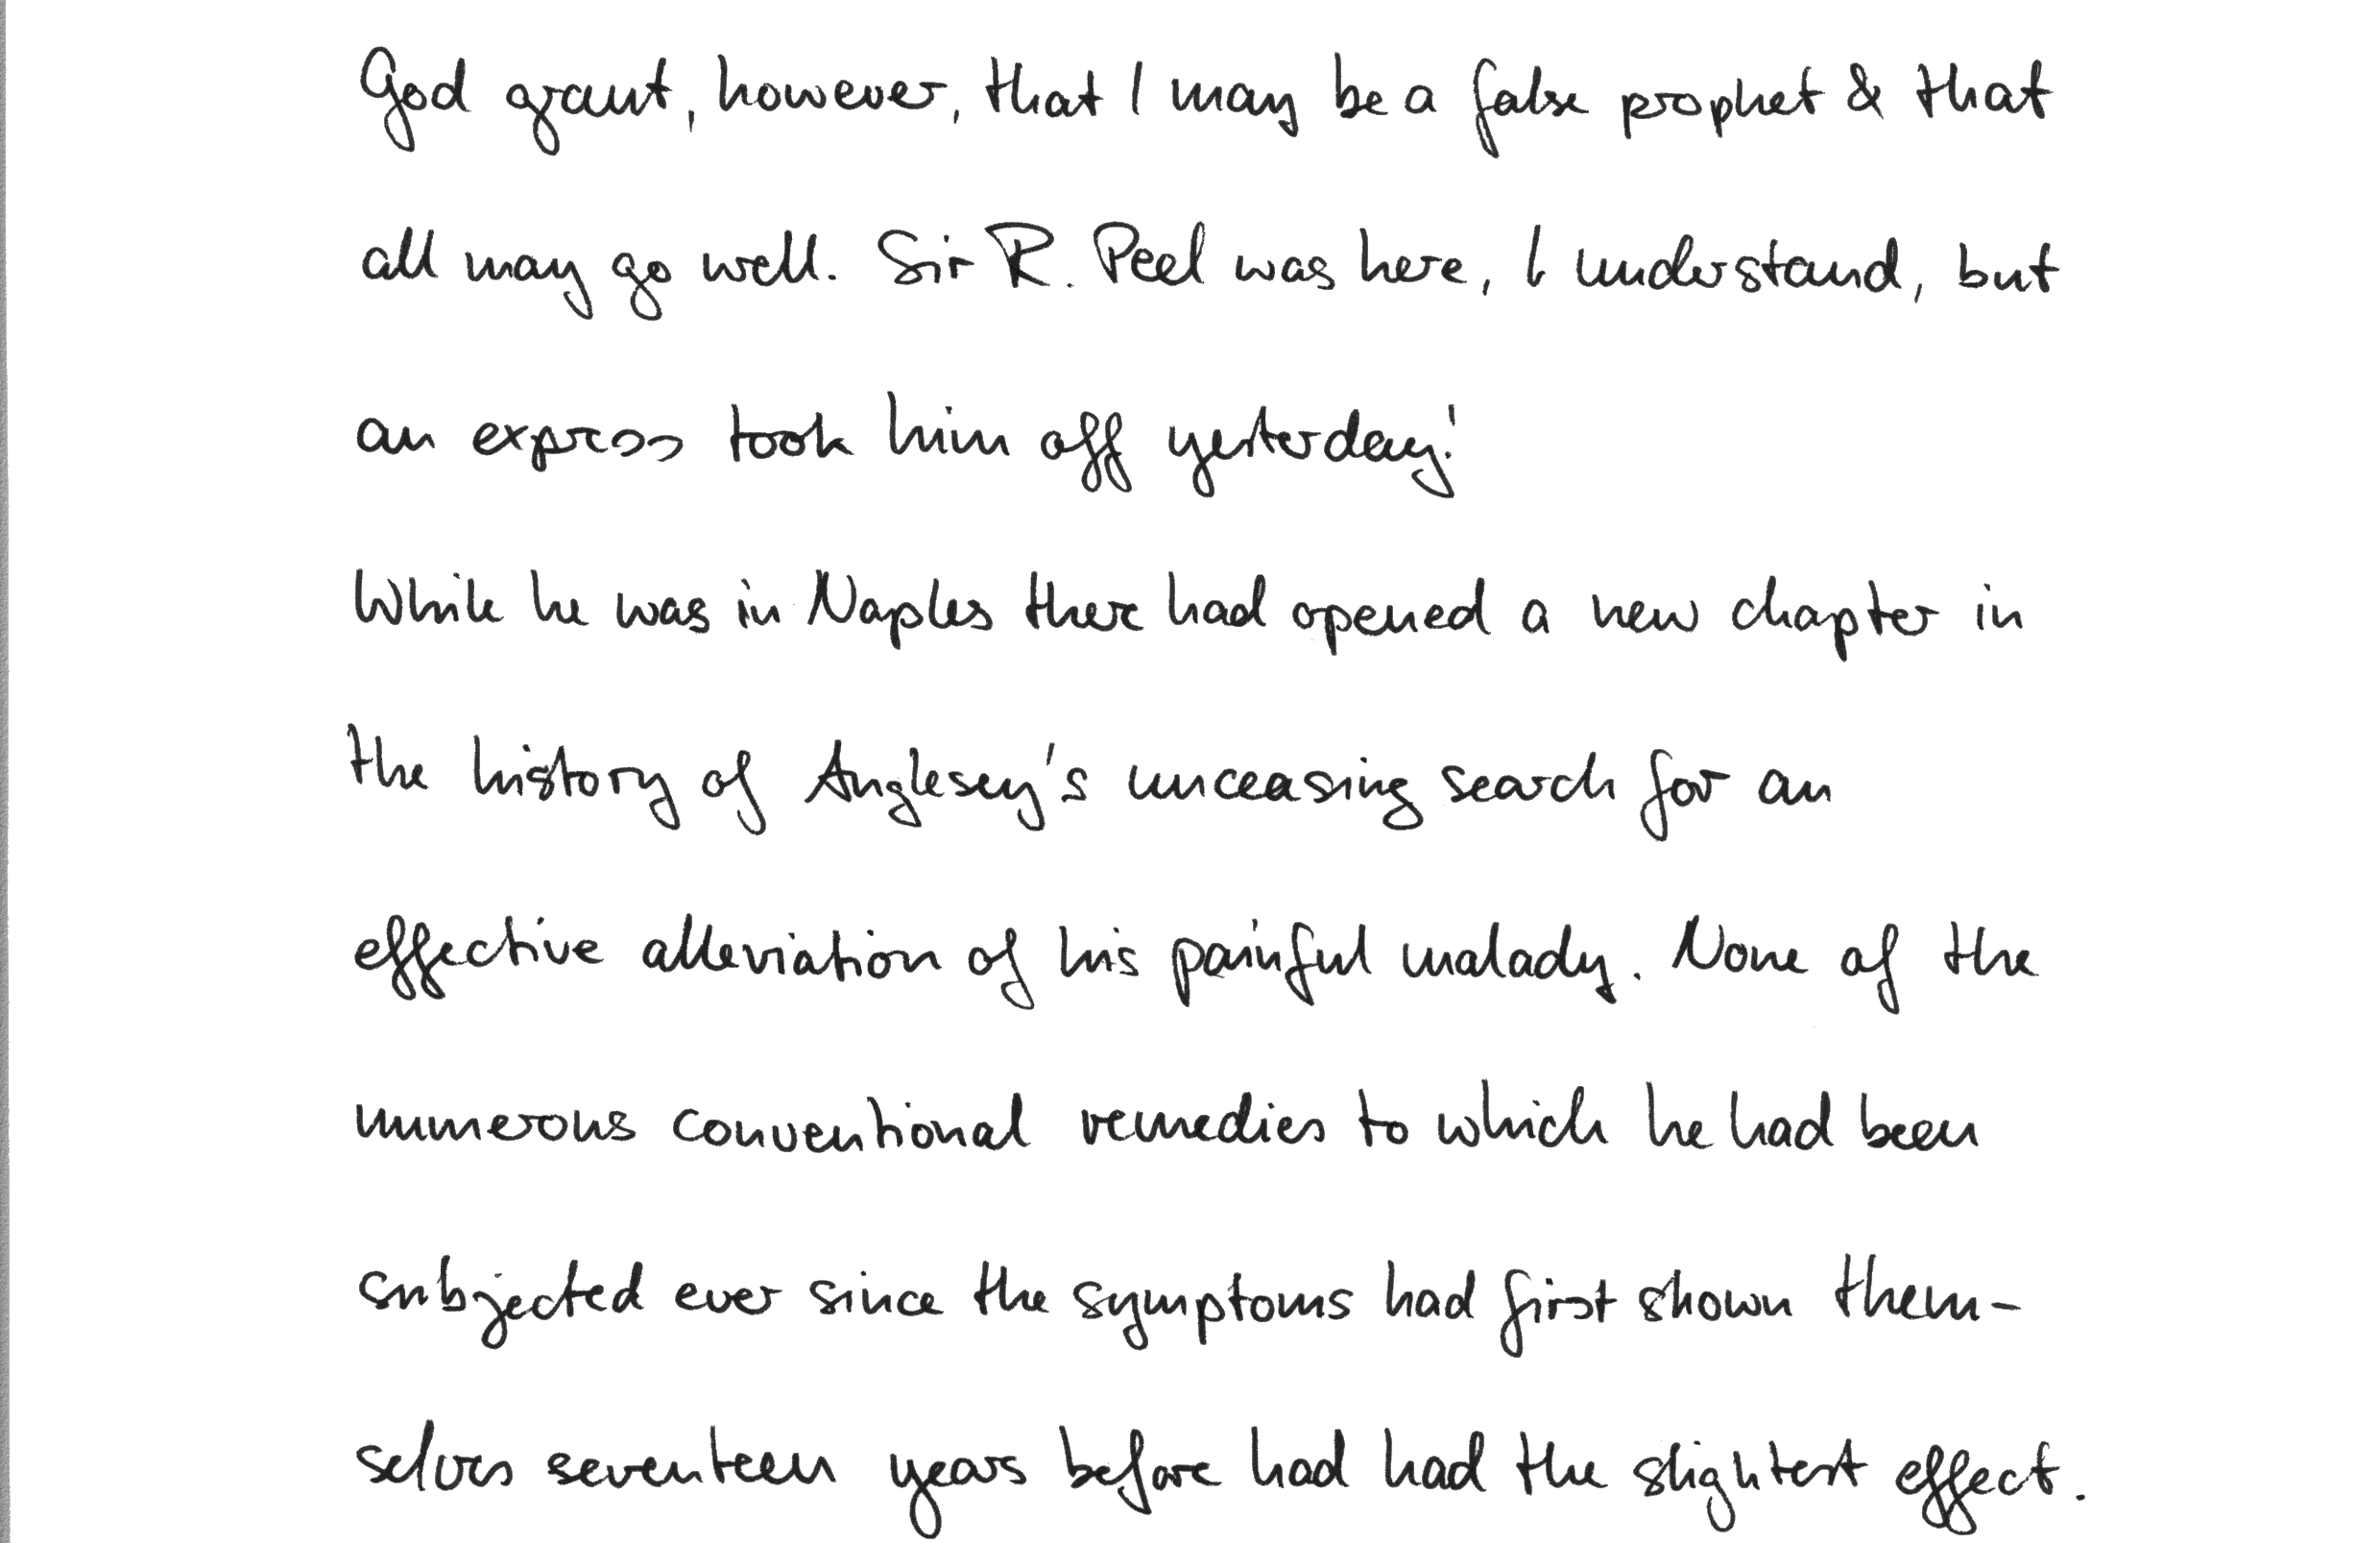 God grant, however, that I may be a false prophet & that
all may go well. Sir R. Peel was here, I understand, but
an express took him off yesterday!
While he was in Naples there had opened a new chapter in
the history of Anglesey's unceasing search for an
effective alleviation of his painful malady. None of the
numerous conventional remedies to which he had been
subjected ever since the symptoms had first shown them-
selves seventeen years before had had the slightest effect.